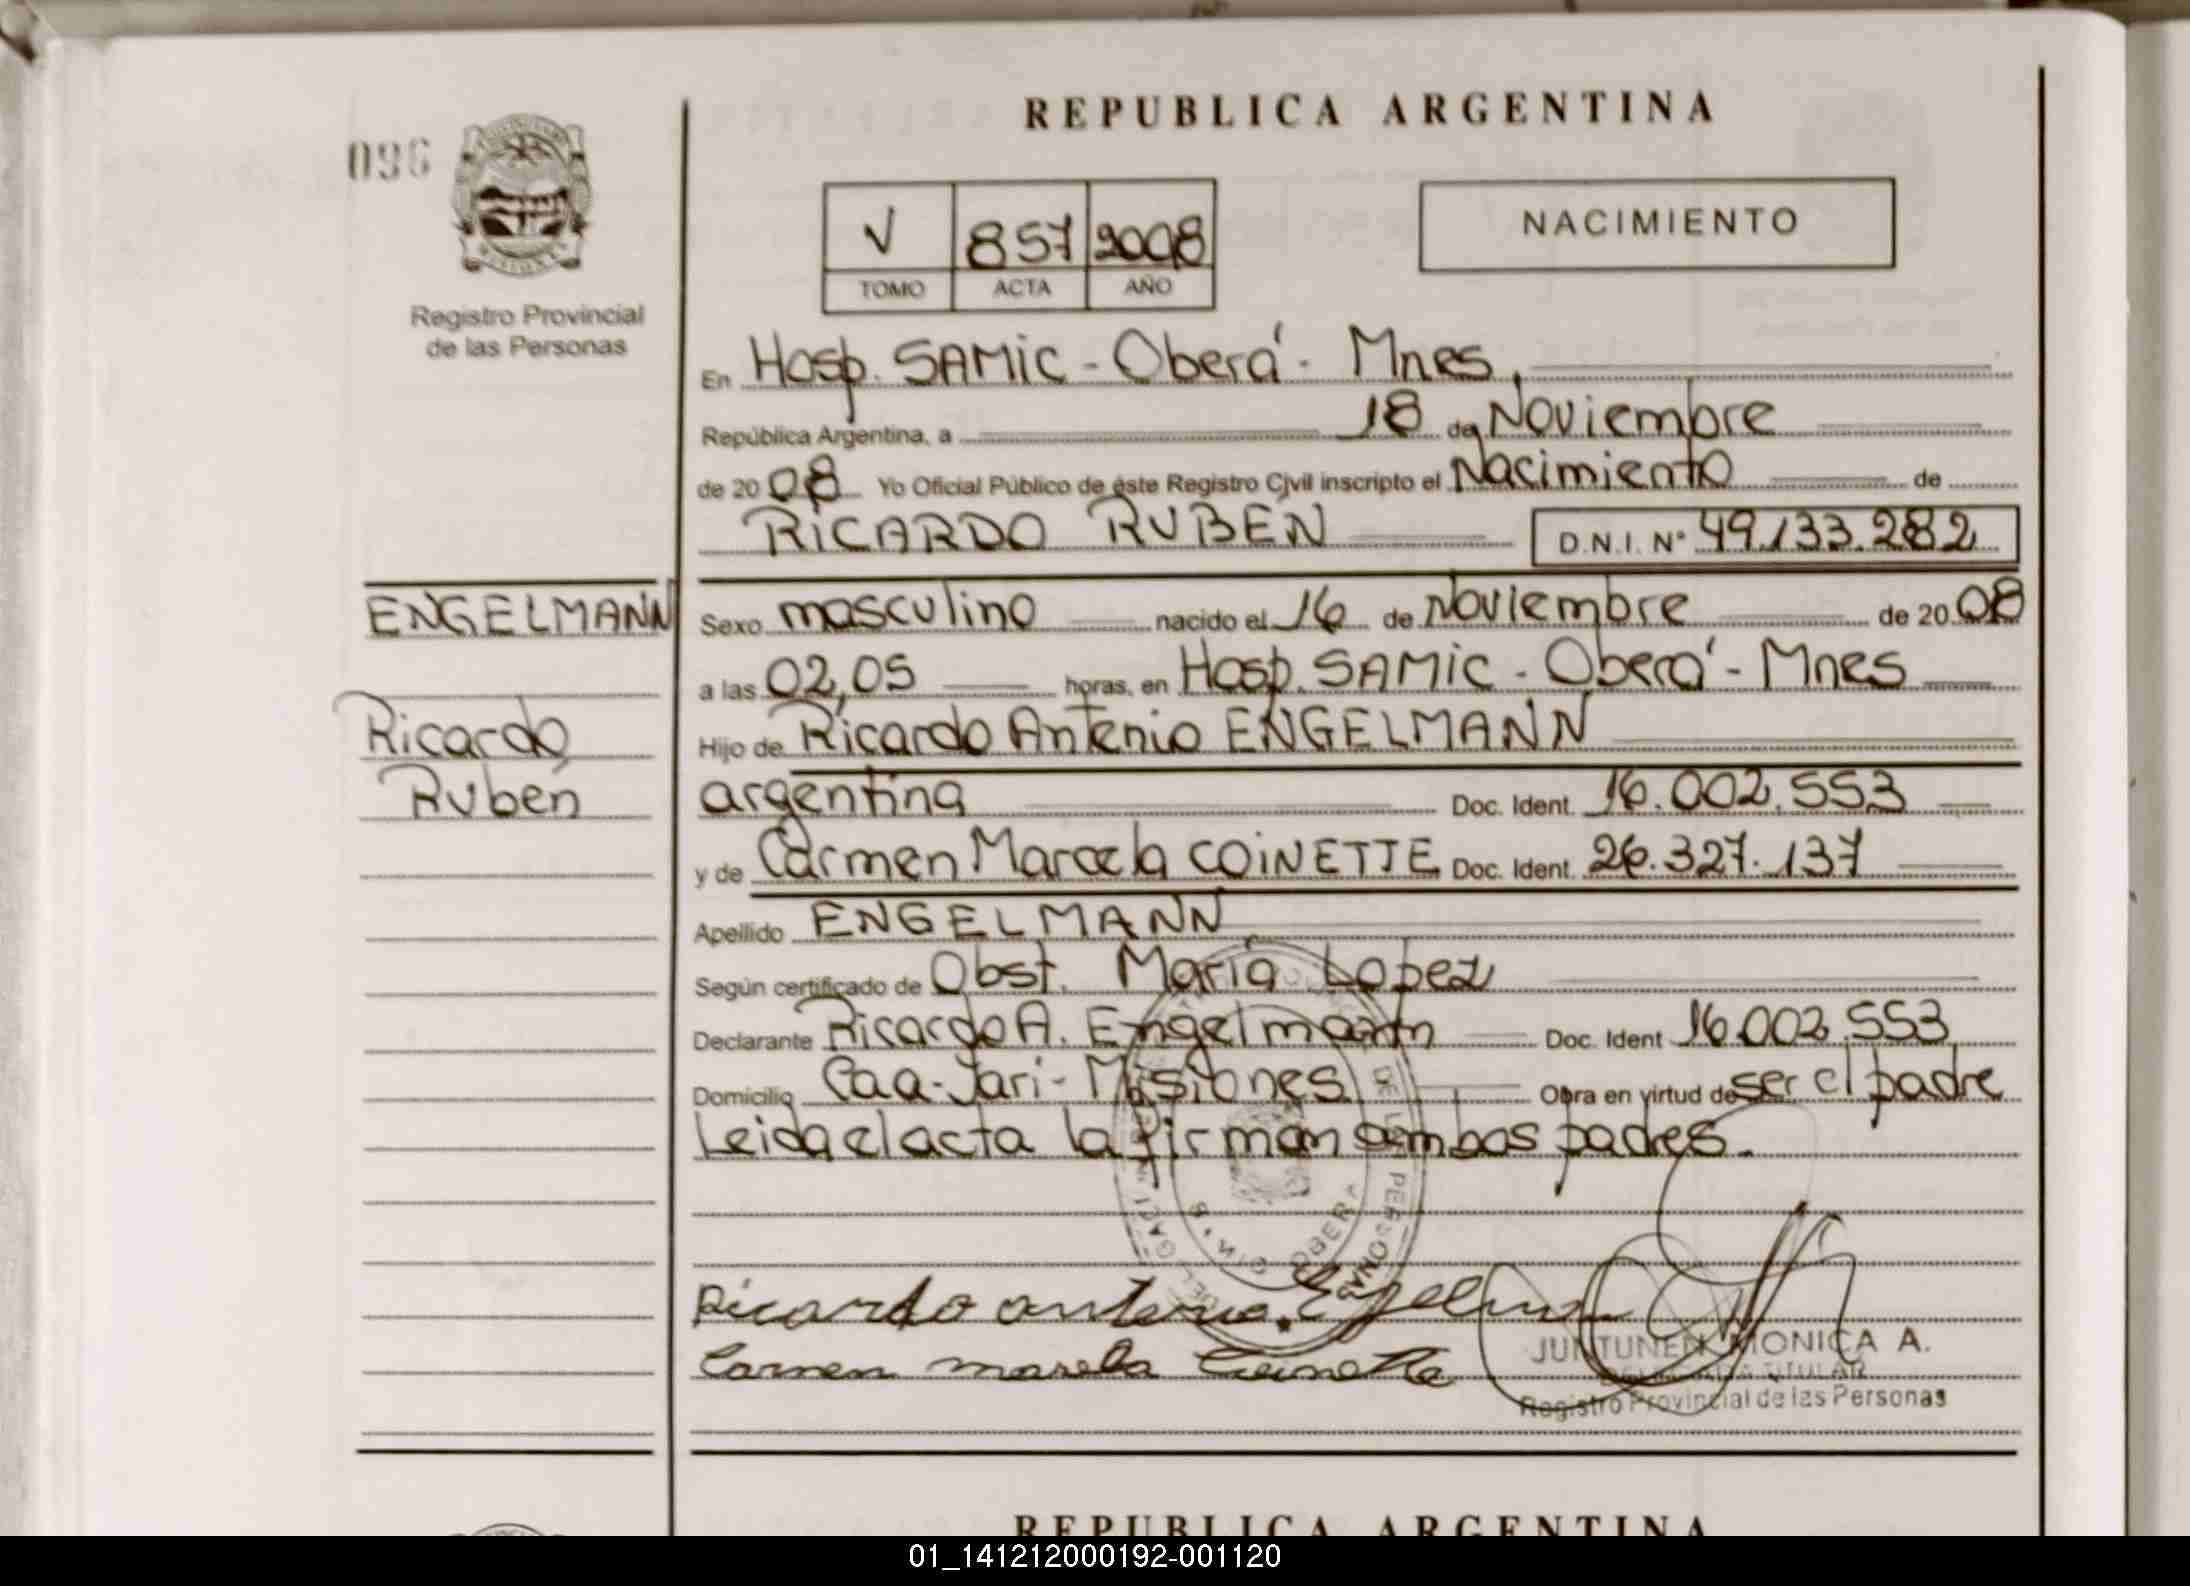 REPUBLICA ARGENTINA
096
V 857 2008
TOMO ACTA AÑO
NACIMIENTO
Registro Provincial
de las Personas
En Hosp. SAMIC - Oberá - Mnes.
República Argentina, a 18 de Noviembre
de 2008 Yo Oficial Público de éste Registro Civil inscripto el Nacimiento de
RICARDO RUBÉN D.N.I. N° 49.133.282
ENGELMANN
Ricardo
Rubén
Sexo masculino nacido el 16 de Noviembre de 2008
a las 02,05 horas, en Hosp. SAMIC - Oberá - Mnes
Hijo de Ricardo Antonio ENGELMANN
argentina Doc. Ident. 16.002.553
y de Carmen Marcela COINETTE Doc. Ident. 26.327.137
Apellido ENGELMANN
Según certificado de Obst. María Lopez
Declarante Ricardo A. Engelmann Doc. Ident 16.002.553
Domicilio Caa-Yari - Misiones Obra en virtud de ser el padre
Leida el acta la firman ambos padres.
DE LAS PERSONAS
OBERA
Ricardo antonio Engelmann
Carmen marcela Coinette
JUNTUNEN MONICA A.
DELEGADA TITULAR
Registro Provincial de las Personas
REPUBLICA ARGENTINA
01_141212000192-001120